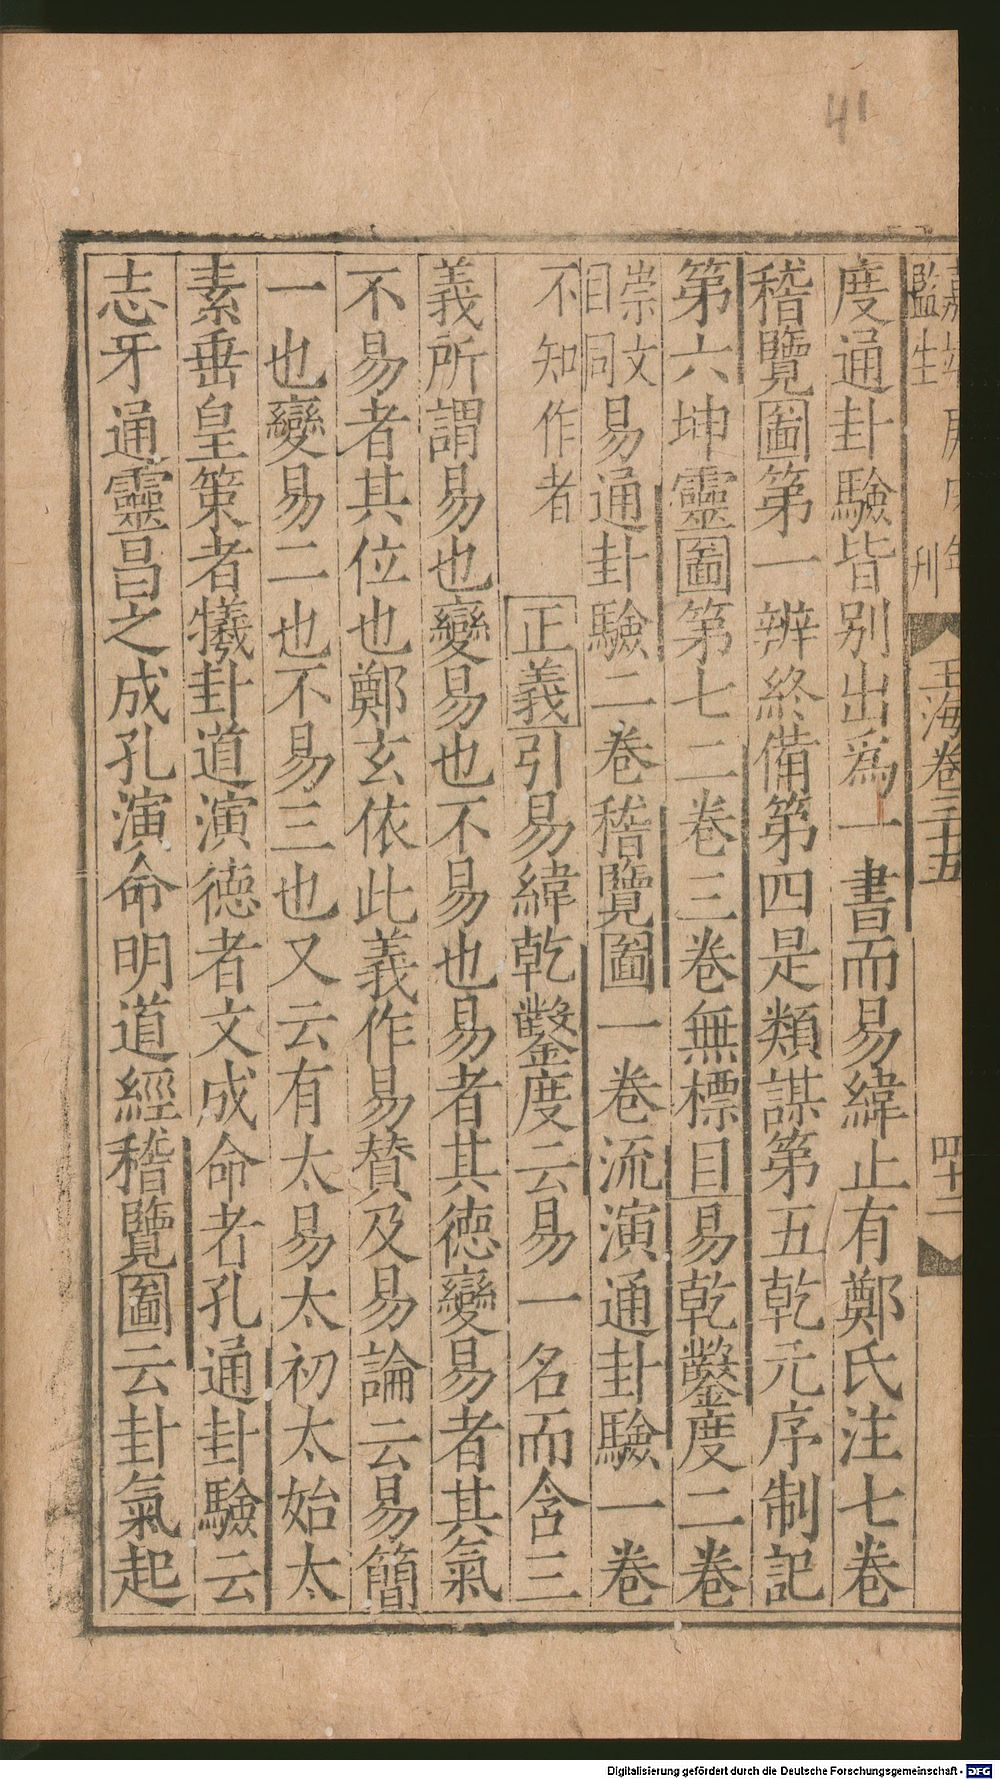 41
監生 刊
玉海卷三十五
四十二
度通卦驗皆别出爲一書而易緯止有鄭氏注七卷
稽覽圖第一辨終備第四是類謀第五乾元序制記
第六坤靈圖第七二卷三卷無標目易乾鑿度二卷
崇文目同易通卦驗二卷稽覽圖一卷流演通卦驗一卷
不知作者正義引易緯乾鑿度云易一名而含三
義所謂易也變易也不易也易者其德變易者其氣
不易者其位也鄭玄依此義作易賛及易論云易簡
一也變易二也不易三也又云有太易太初太始太
素垂皇策者犧卦道演德者文成命者孔通卦驗云
志牙通靈昌之成孔演命明道經稽覽圖云卦氣起
Digitalisierung gefördert durch die Deutsche Forschungsgemeinschaft - DFG